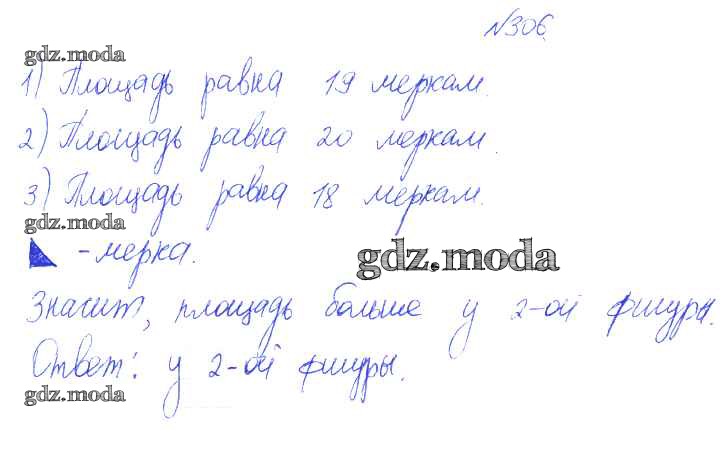 №306.
gdz.moda
1) Площадь равна 19 меркам.
2) Площадь равна 20 меркам.
3) Площадь равна 18 меркам.
gdz.moda
- мерка.
gdz.moda
Значит, площадь больше у 2-ой фигуры.
Ответ: у 2-ой фигуры.
gdz.moda